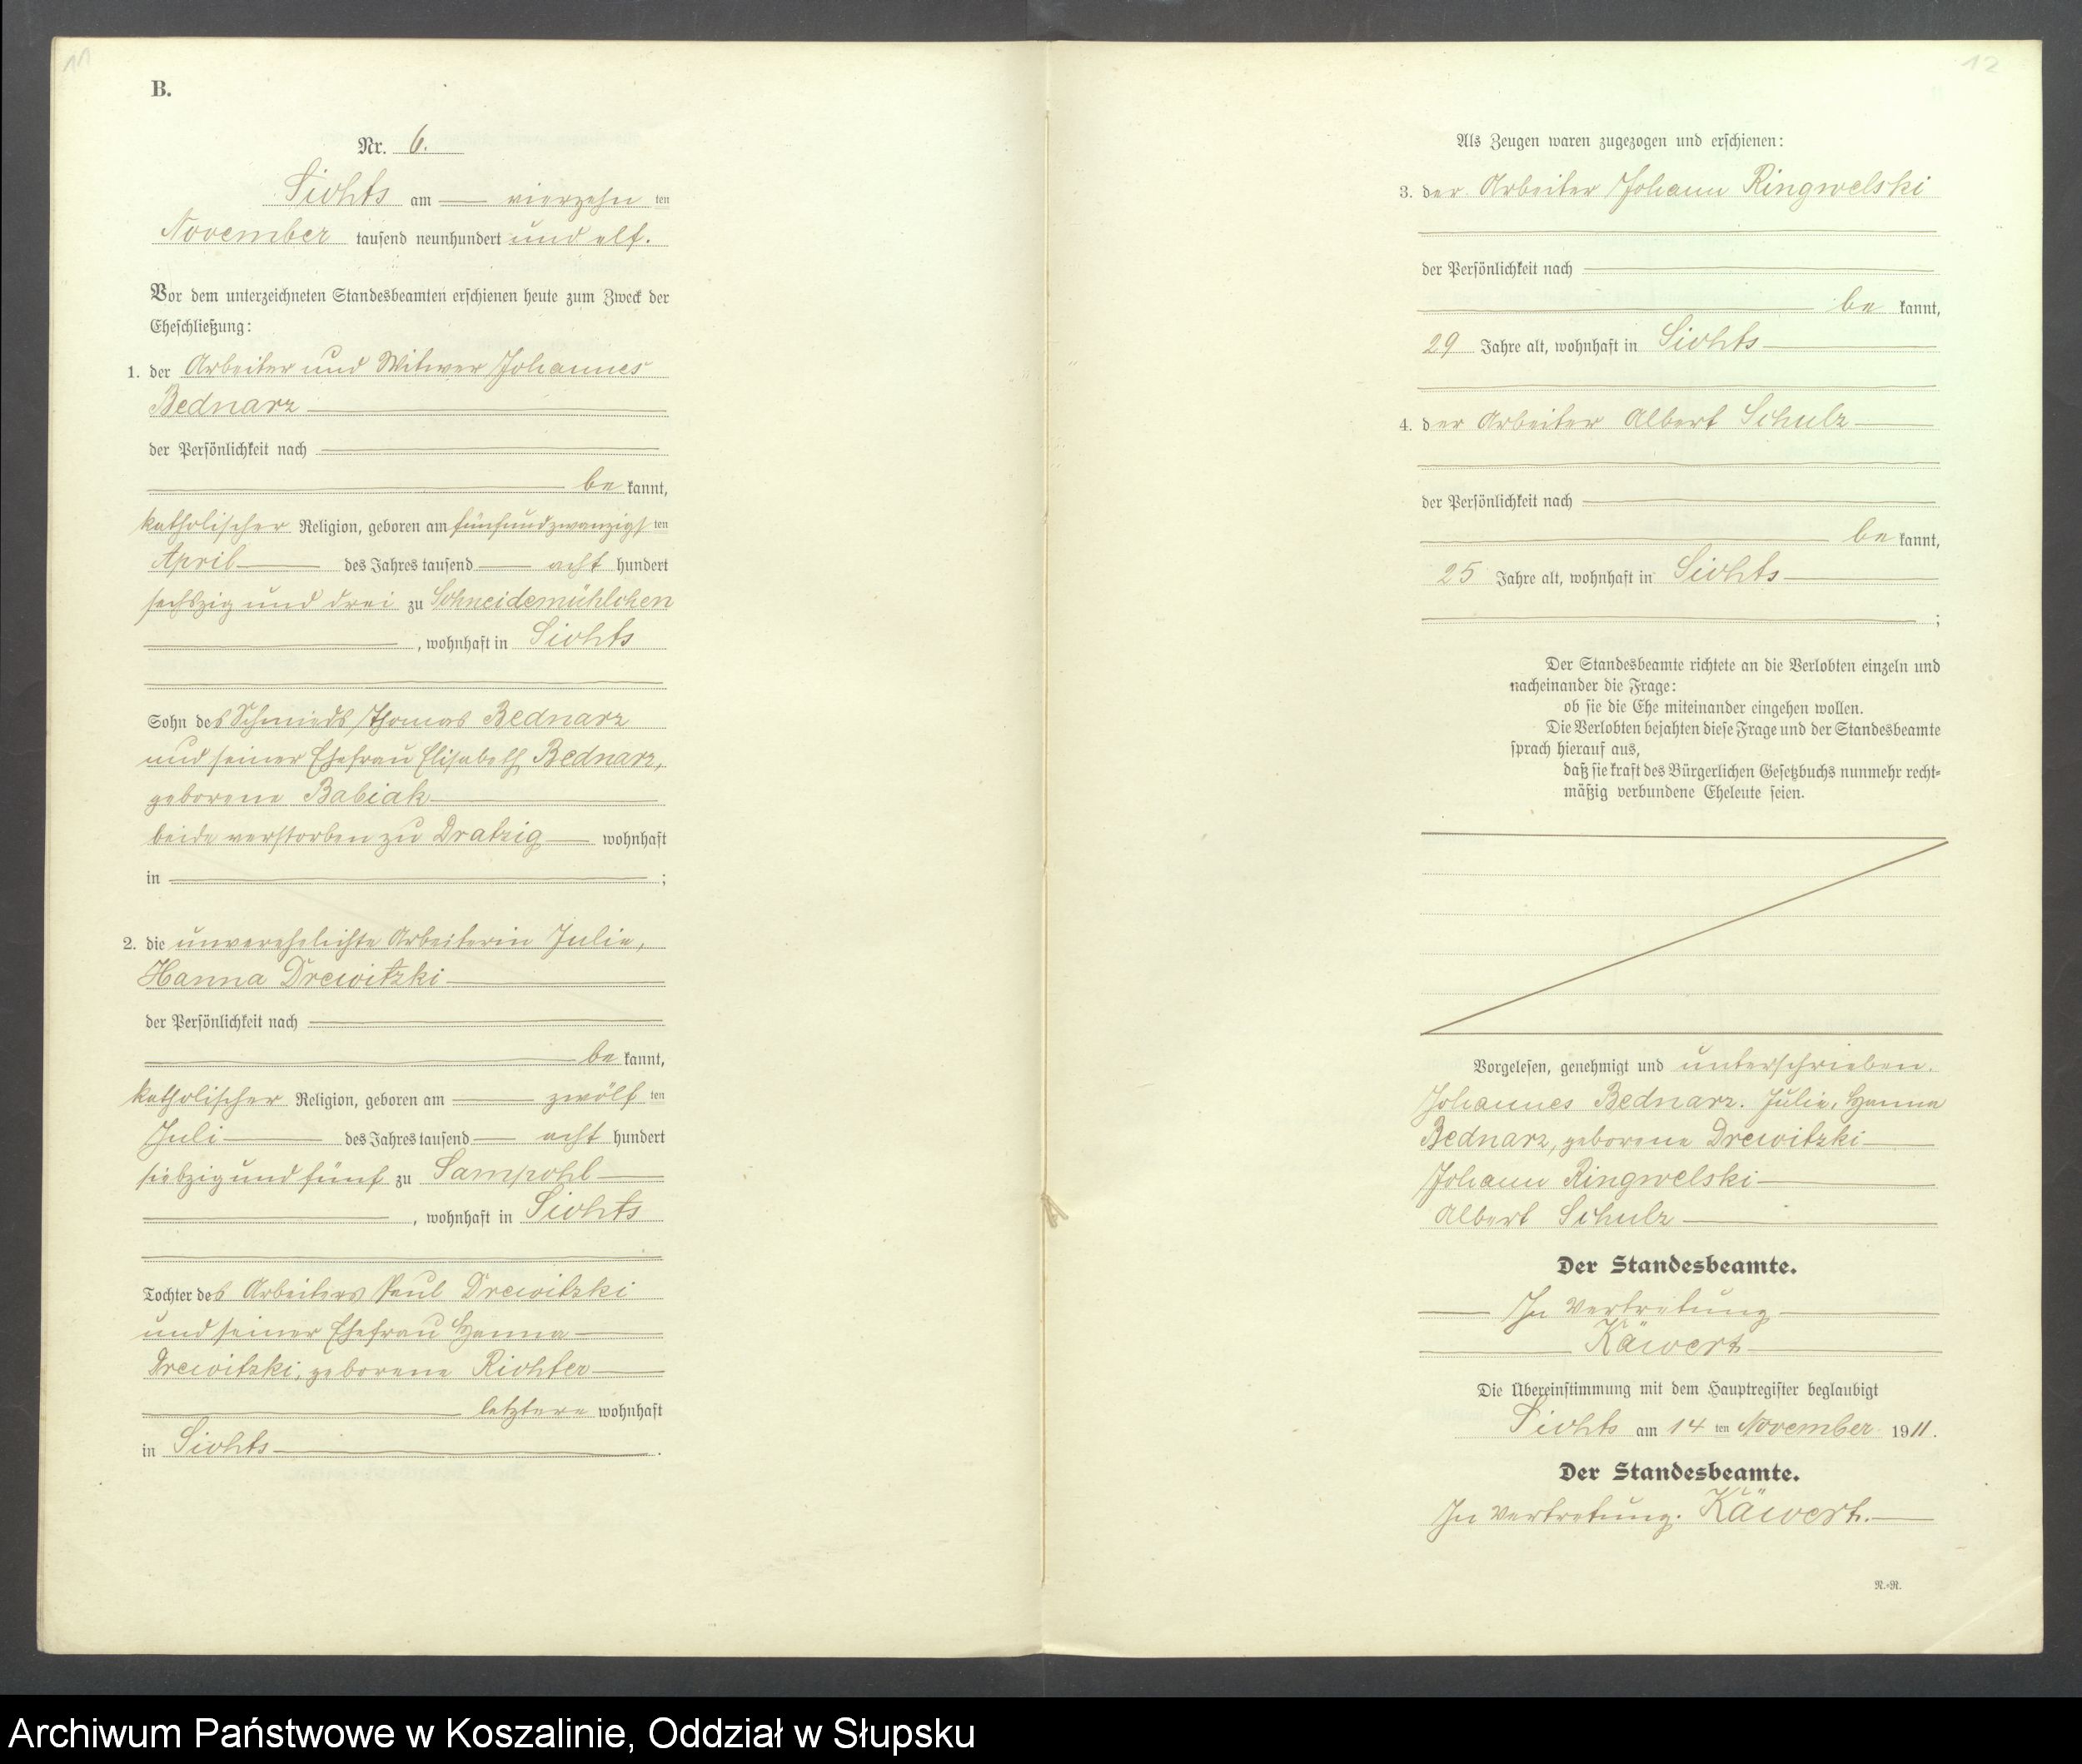 11
B.
Nr. 6.
Sichts am — vierzehn ten
November tausend neunhundert und elf.
Vor dem unterzeichneten Standesbeamten erschienen heute zum Zweck der
Eheschließung:
1. der Arbeiter und Witwer Johannes
Bednarz
der Persönlichkeit nach
be kannt,
katholischer Religion, geboren am fünfundzwanzigst ten
April des Jahres tausend acht hundert
sechszig und drei zu Schneidemühlchen
, wohnhaft in Sichts
Sohn des Schmieds Thomas Bednarz
und seiner Ehefrau Elisabeth Bednarz,
geborene Babiak
beide verstorben zu Dratzig wohnhaft
in ;
2. die unverehelichte Arbeiterin Julie,
Hanna Drewitzki
der Persönlichkeit nach
be kannt,
katholischer Religion, geboren am zwölf ten
Juli des Jahres tausend acht hundert
siebzig und fünf zu Sampohl
, wohnhaft in Sichts
Tochter des Arbeiters Paul Drewitzki
und seiner Ehefrau Hanna
Drewitzki, geborene Richter
letztere wohnhaft
in Sichts .
12
Als Zeugen waren zugezogen und erschienen:
3. der Arbeiter Johann Ringwelski
der Persönlichkeit nach
be kannt,
29 Jahre alt, wohnhaft in Sichts
4. der Arbeiter Albert Schulz
der Persönlichkeit nach
be kannt,
25 Jahre alt, wohnhaft in Sichts
;
Der Standesbeamte richtete an die Verlobten einzeln und
nacheinander die Frage:
ob sie die Ehe miteinander eingehen wollen.
Die Verlobten bejahten diese Frage und der Standesbeamte
sprach hierauf aus,
daß sie kraft des Bürgerlichen Gesetzbuchs nunmehr recht-
mäßig verbundene Eheleute seien.
Vorgelesen, genehmigt und unterschrieben.
Johannes Bednarz. Julie, Hanna
Bednarz, geborene Drewitzki
Johann Ringwelski
Albert Schulz
Der Standesbeamte.
In Vertretung
Käwert
Die Übereinstimmung mit dem Hauptregister beglaubigt
Sichts am 14 ten November 1911.
Der Standesbeamte.
In Vertretung. Käwert.
N.-N.
Archiwum Państwowe w Koszalinie, Oddział w Słupsku